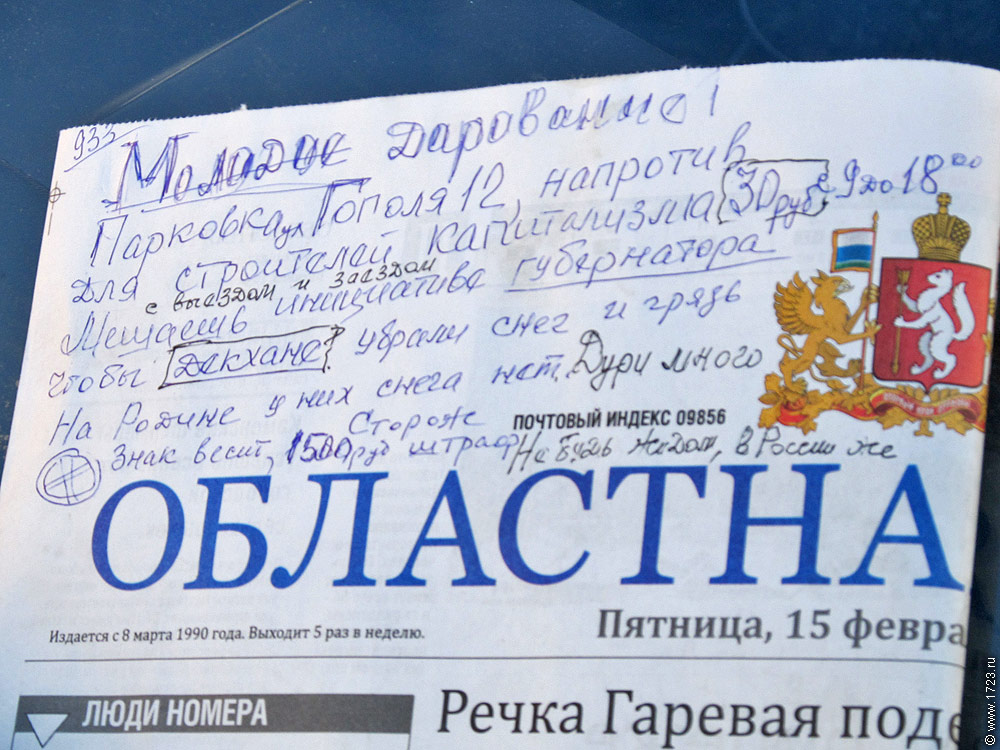 933
Молодое Дарование!
Парковка ул Тополя 12, напротив
для строителей капитализма 30 руб с 9 до 18 00
с выездом и заездом
Мешаешь инициативе губернатора
чтобы Декхане убрали снег и грязь
На Родине у них снега нет. Дури много
Сторож
Знак весит, 1500 руб штраф
Не будь жидом, в России же
ПОЧТОВЫЙ ИНДЕКС 09856
ОБЛАСТНА
Издается с 8 марта 1990 года. Выходит 5 раз в неделю.
Пятница, 15 февра
ЛЮДИ НОМЕРА
Речка Гаревая поде
© www.1723.ru